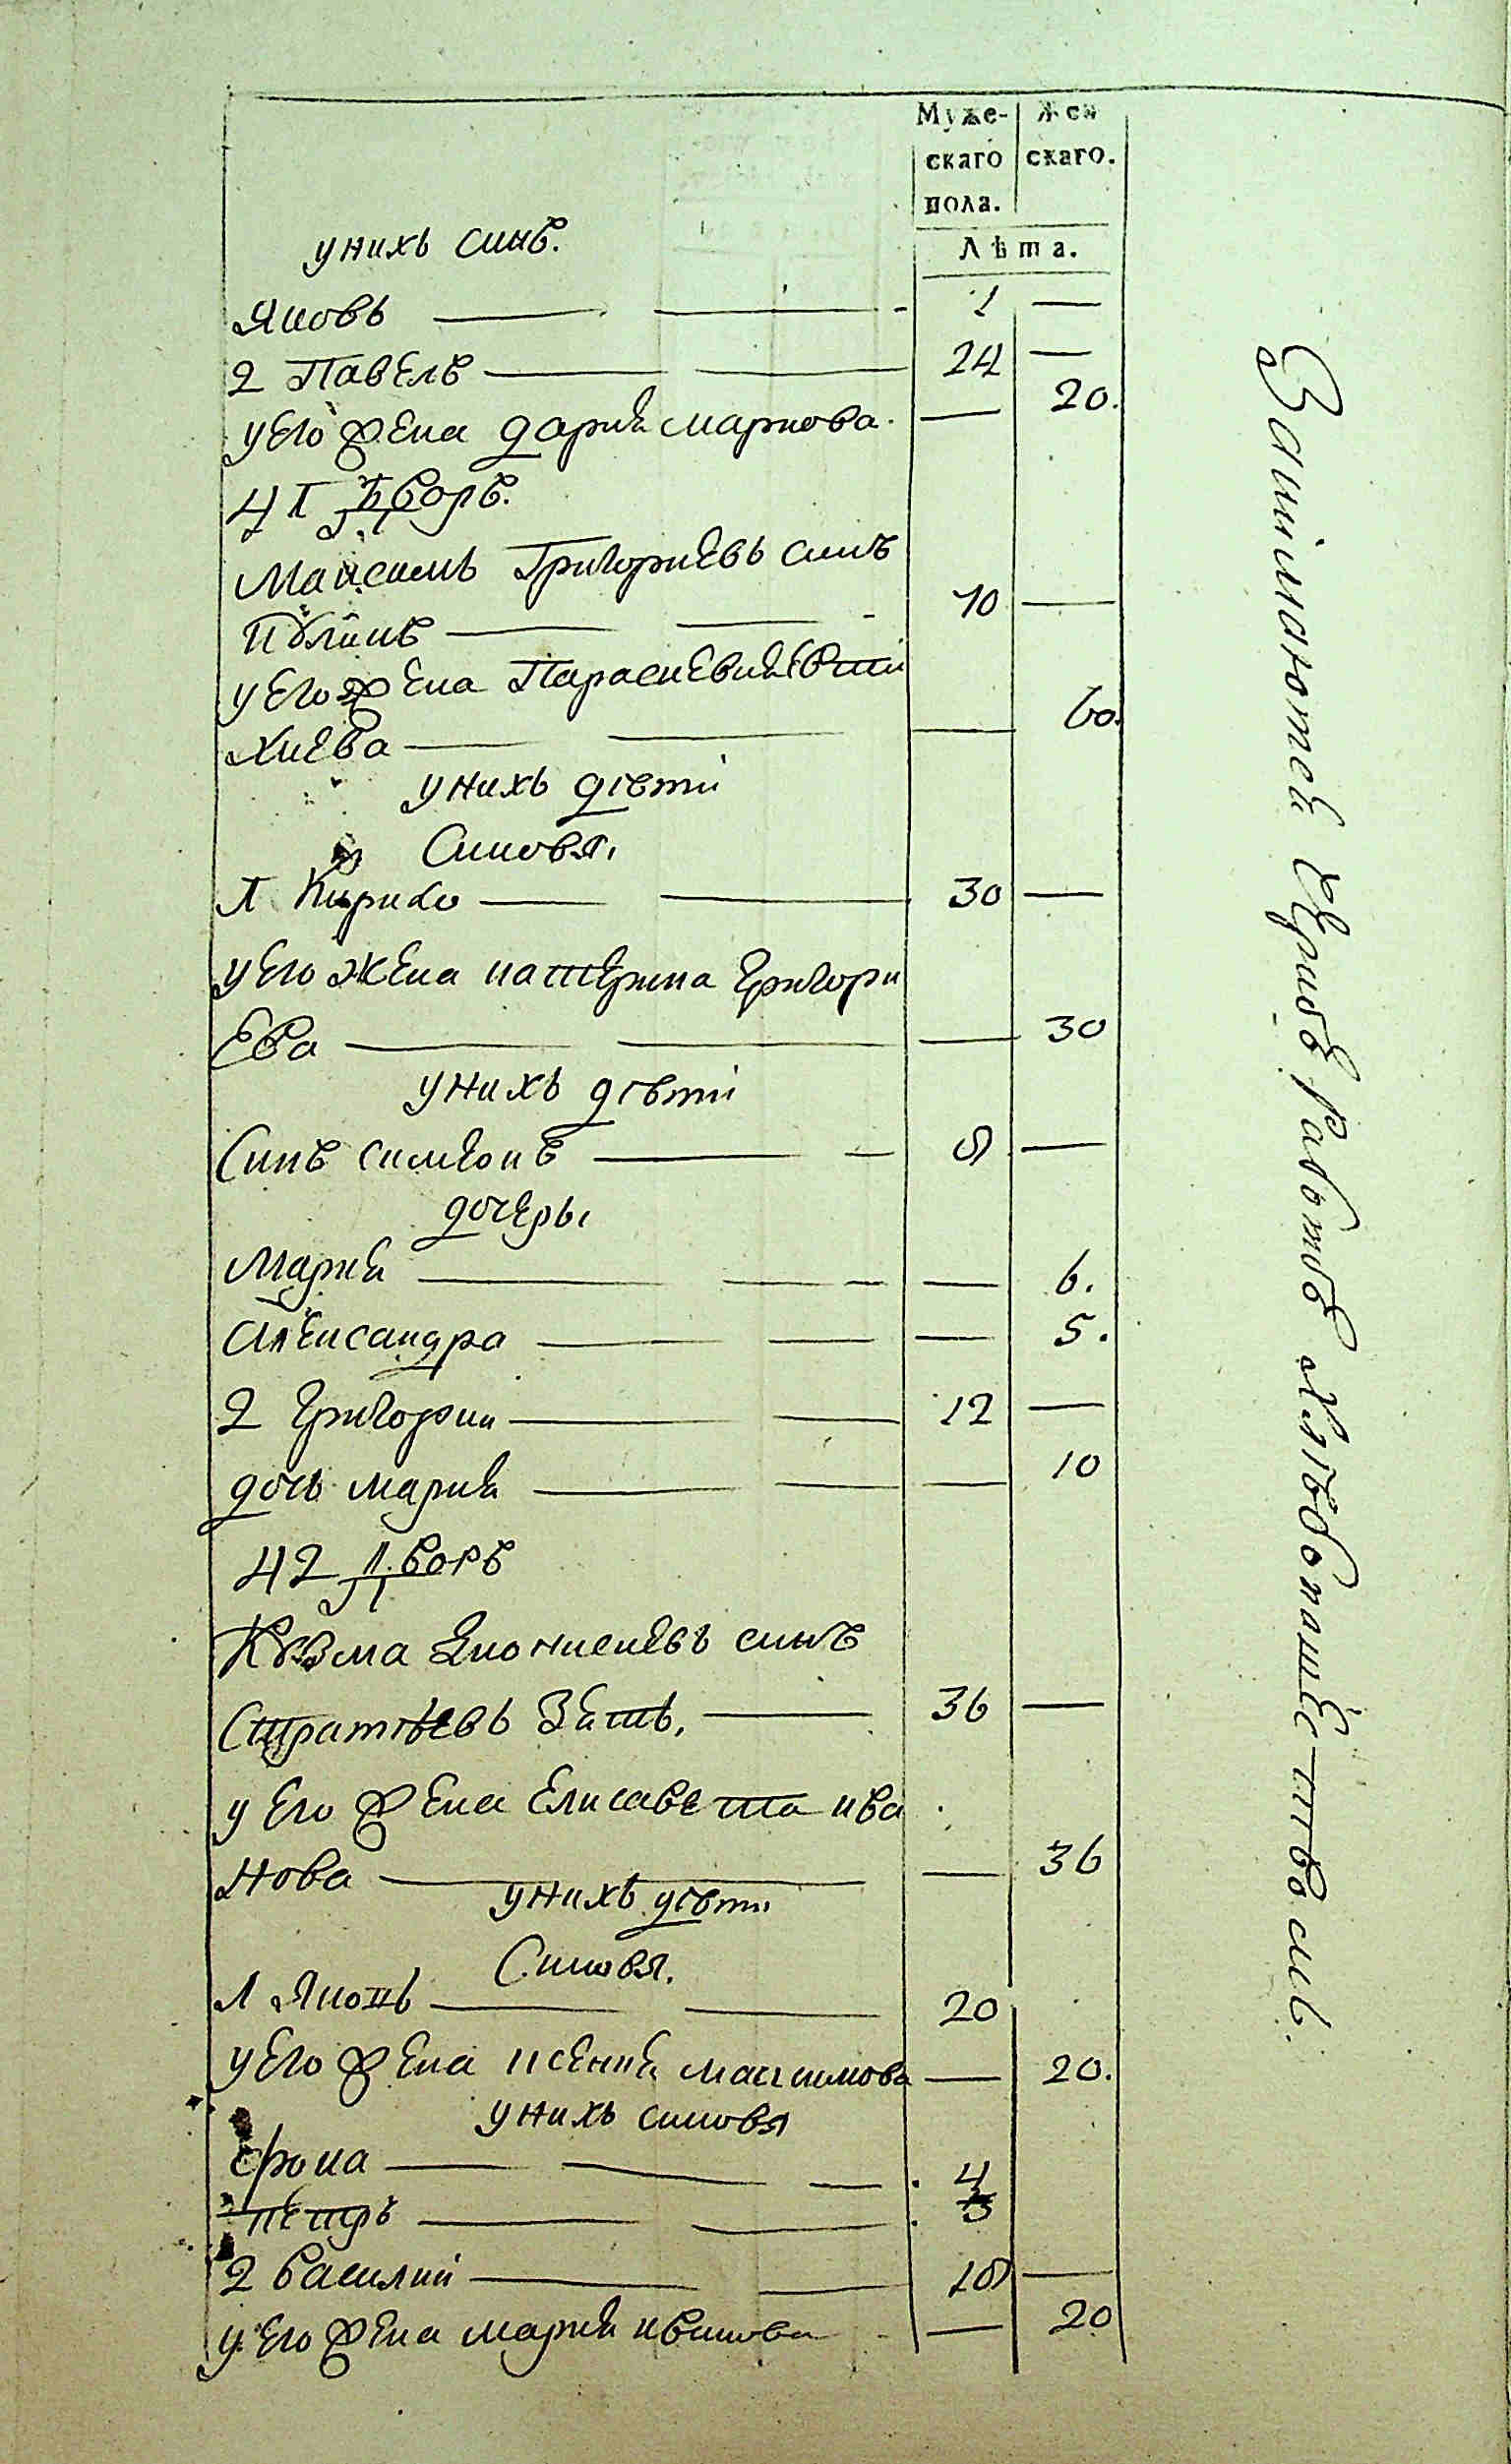 Муже-
скаго
пола.
жен
скаго.
Лѣта.
унихъ синъ.
Яковъ — — 1 —
2 Павелъ — — 24 —
уего жена дария маркова. — 20.
41 Дворъ.
Маѯимъ Григориевъ синъ
— — 70 —
уего жена Параскевия Евти
хиева — — — 60.
унихъ дѣти
Синовя.
1 Кирило — — 30 —
уего жена катерина григори
Ева — — — 30
унихъ дѣти
Синъ симеонъ — — 8 —
дочеры
Мария — — — 6.
Александра — — — 5.
2 григории — — 12 —
дочь мария — — — 10
42 Дворъ
Козма Дионисиевъ синъ
Стратиевъ Зять, — 36 —
у его жена Елисавета ива
нова — — 36
унихъ дѣти
Синовя.
1 Яковъ — — 20
уего жена ксения маѯимова — 20.
унихъ синовя
— — 4
петръ — — 3
2 василии — — 18 —
у его жена мария иванова — 20
Занимаютсѧ Черною работою хлѣбопашествомъ.